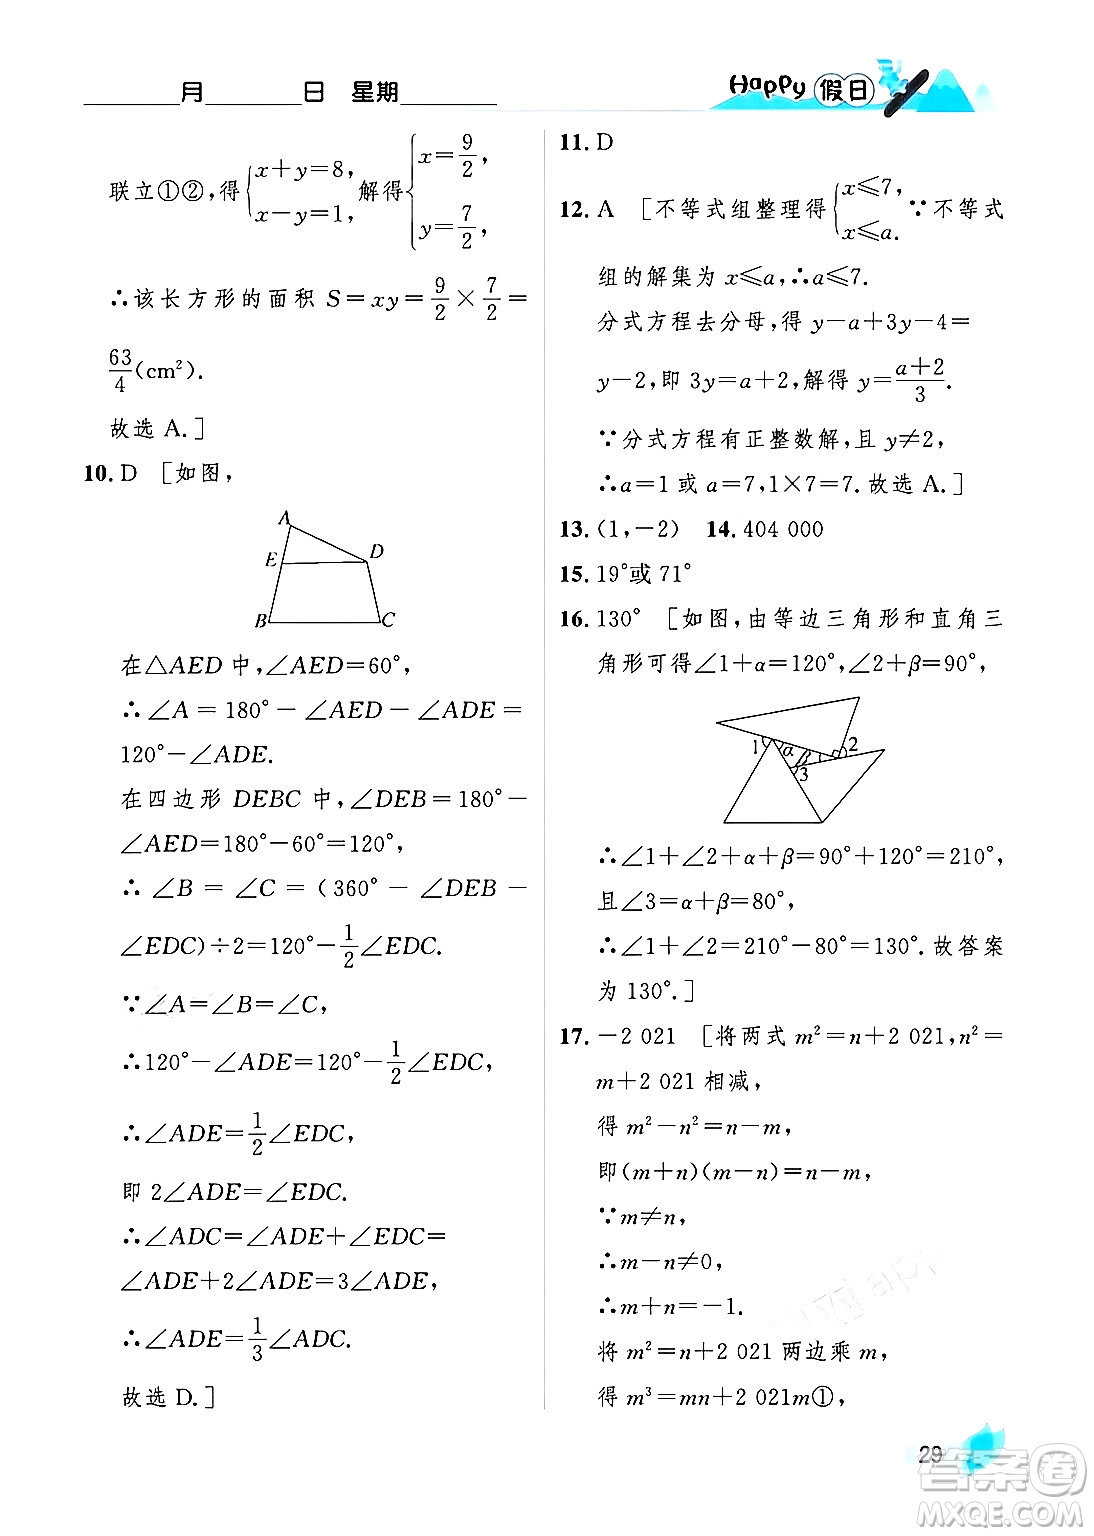 月 日 星期
Happy 假日
联立①②,得{x+y=8, x-y=1, 解得{x=9/2, y=7/2,
∴该长方形的面积 S=xy=9/2×7/2=
63/4(cm²).
故选 A.]
10. D [如图,
A
E D
B C
在△AED 中,∠AED=60°,
∴∠A=180°-∠AED-∠ADE=
120°-∠ADE.
在四边形 DEBC 中,∠DEB=180°-
∠AED=180°-60°=120°,
∴∠B=∠C=(360°-∠DEB-
∠EDC)÷2=120°-1/2∠EDC.
∵∠A=∠B=∠C,
∴120°-∠ADE=120°-1/2∠EDC,
∴∠ADE=1/2∠EDC,
即 2∠ADE=∠EDC.
∴∠ADC=∠ADE+∠EDC=
∠ADE+2∠ADE=3∠ADE,
∴∠ADE=1/3∠ADC.
故选 D.]
11. D
12. A [不等式组整理得{x≤7, x≤a. ∵不等式
组的解集为 x≤a,∴a≤7.
分式方程去分母,得 y-a+3y-4=
y-2,即 3y=a+2,解得 y=(a+2)/3.
∵分式方程有正整数解,且 y≠2,
∴a=1 或 a=7,1×7=7.故选 A.]
13. (1,-2) 14. 404 000
15. 19°或 71°
16. 130° [如图,由等边三角形和直角三
角形可得∠1+α=120°,∠2+β=90°,
1 α β 2
3
∴∠1+∠2+α+β=90°+120°=210°,
且∠3=α+β=80°,
∴∠1+∠2=210°-80°=130°.故答案
为 130°.]
17. -2 021 [将两式 m²=n+2 021,n²=
m+2 021 相减,
得 m²-n²=n-m,
即(m+n)(m-n)=n-m,
∵m≠n,
∴m-n≠0,
∴m+n=-1.
将 m²=n+2 021 两边乘 m,
得 m³=mn+2 021m①,
29
答案圈
MXQE.COM